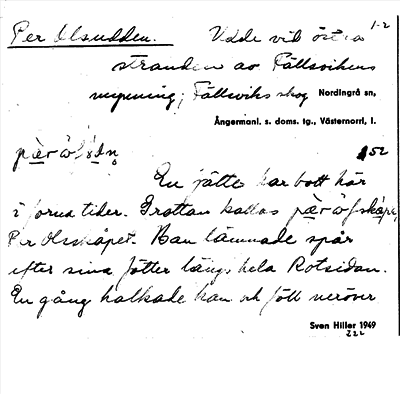 Per Olsudden. Udde vid östra 1-2
stranden av Fällsvikens
mynning, Fällsviks skog Nordingrå sn,
Ångermanl. s. doms. tg., Västernorrl, l.
52
En jätte har bott här
i forna tider. Grottan kallas
Per Olsskåpet. Han lämnade spår
efter sina fötter längs hela Rotsidan.
En gång halkade han och föll neröver
Sven Hiller 1949
222